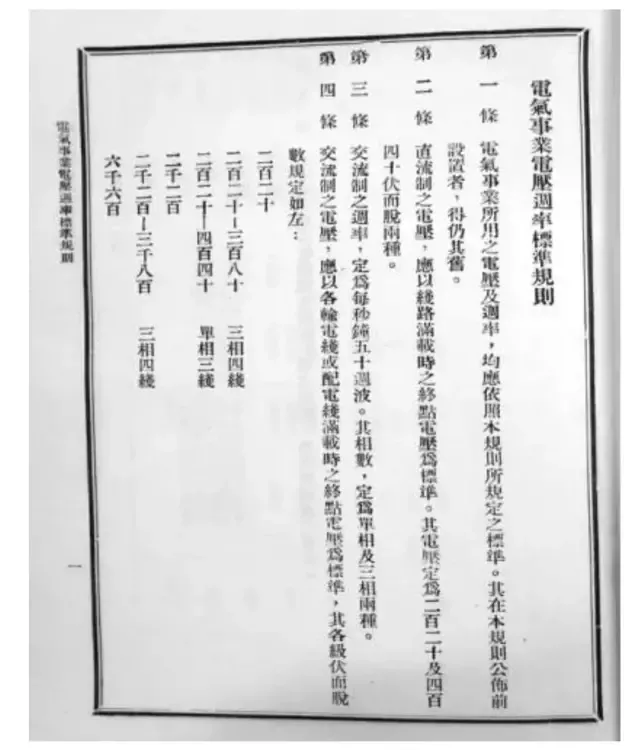 電氣事業電壓週率標準規則
第一條 電氣事業所用之電壓及週率，均應依照本規則所規定之標準。其在本規則公佈前
設置者，得仍其舊。
第二條 直流制之電壓，應以綫路滿載時之終點電壓爲標準。其電壓定爲二百二十及四百
四十伏而脫兩種。
第三條 交流制之週率，定爲每秒鐘五十週波。其相數，定爲單相及三相兩種。
第四條 交流制之電壓，應以各輸電綫或配電綫滿載時之終點電壓爲標準，其各級伏而脫
數規定如左：
二百二十
二百二十—三百八十 三相四綫
二百二十—四百四十 單相三綫
二千二百
二千二百—三千八百 三相四綫
六千六百
電氣事業電壓週率標準規則
一